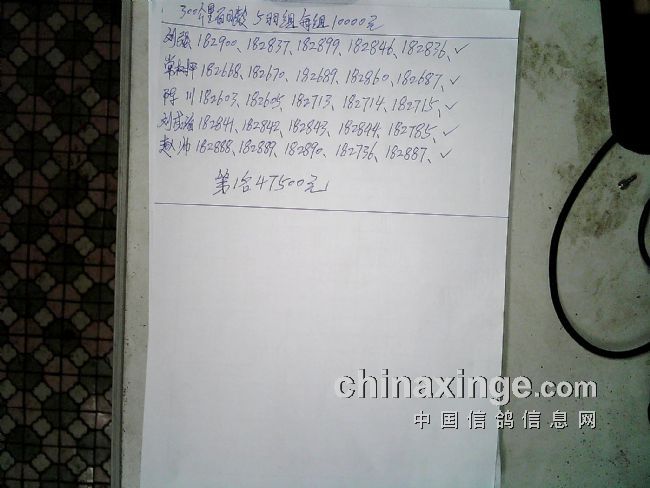 300公里 5羽组 每组10000元
刘强 182900、182837、182899、182846、182836、✓
常树平 182668、182670、182689、182860、182687、✓
陈川 182603、182605、182713、182714、182715、✓
182841、182842、182843、182844、182785、✓
赵帅 182888、182889、182890、182736、182887、✓
第1名47500元
chinaxinge.com
中国信鸽信息网